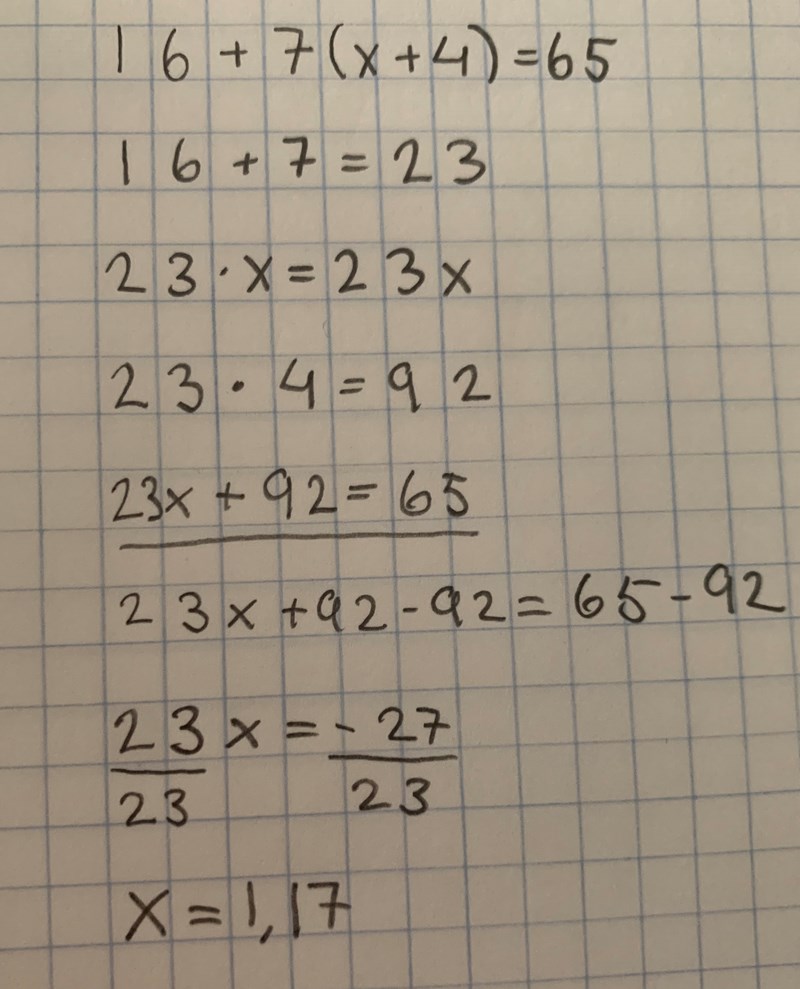 16+7(x+4)=65
16+7=23
23·x=23x
23·4=92
23x+92=65
23x+92-92=65-92
23x=-27
23 23
x=1,17